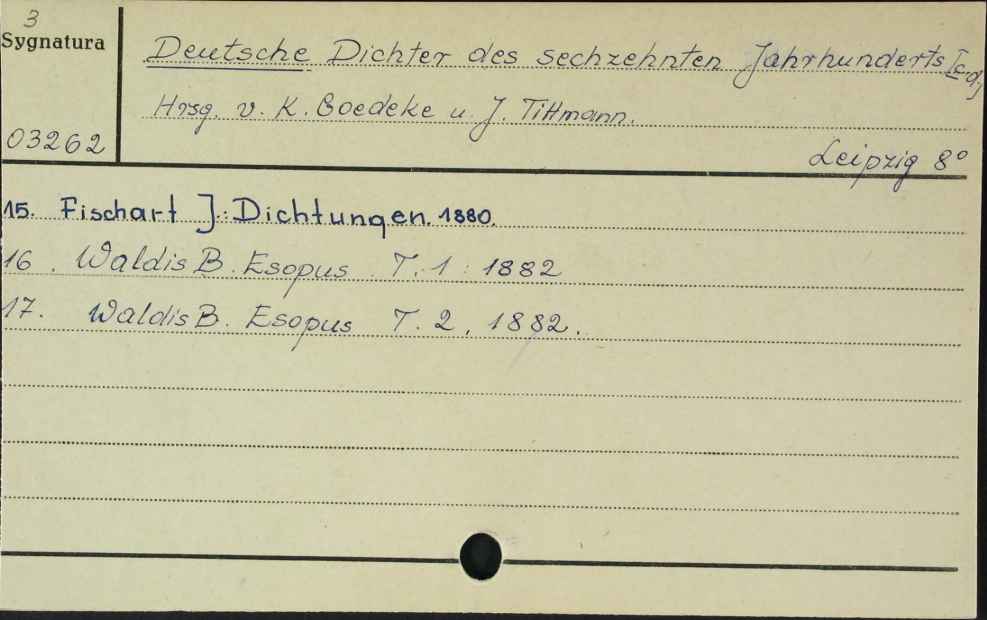 3
Sygnatura
Deutsche Dichter des sechzehnten Jahrhunderts [c.d.]
Hrsg. v. K. Goedeke u. J. Tittmann.
03262
Leipzig 8°
15. Fischart J.: Dichtungen. 1880.
16. Waldis B. Esopus T. 1: 1882
17. Waldis B. Esopus T. 2, 1882.